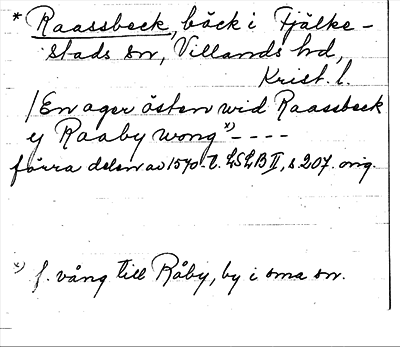 * Raassbeck, bäck i Fjälke-
stads sn, Villands hd,
Krist. l.
/En ager östen wid Raassbeck
ej Raaby wong *) - - - -
förra delen av 1540-t. LSLB II, s 207. orig.
*) f. vång till Råby, by i sma sn.